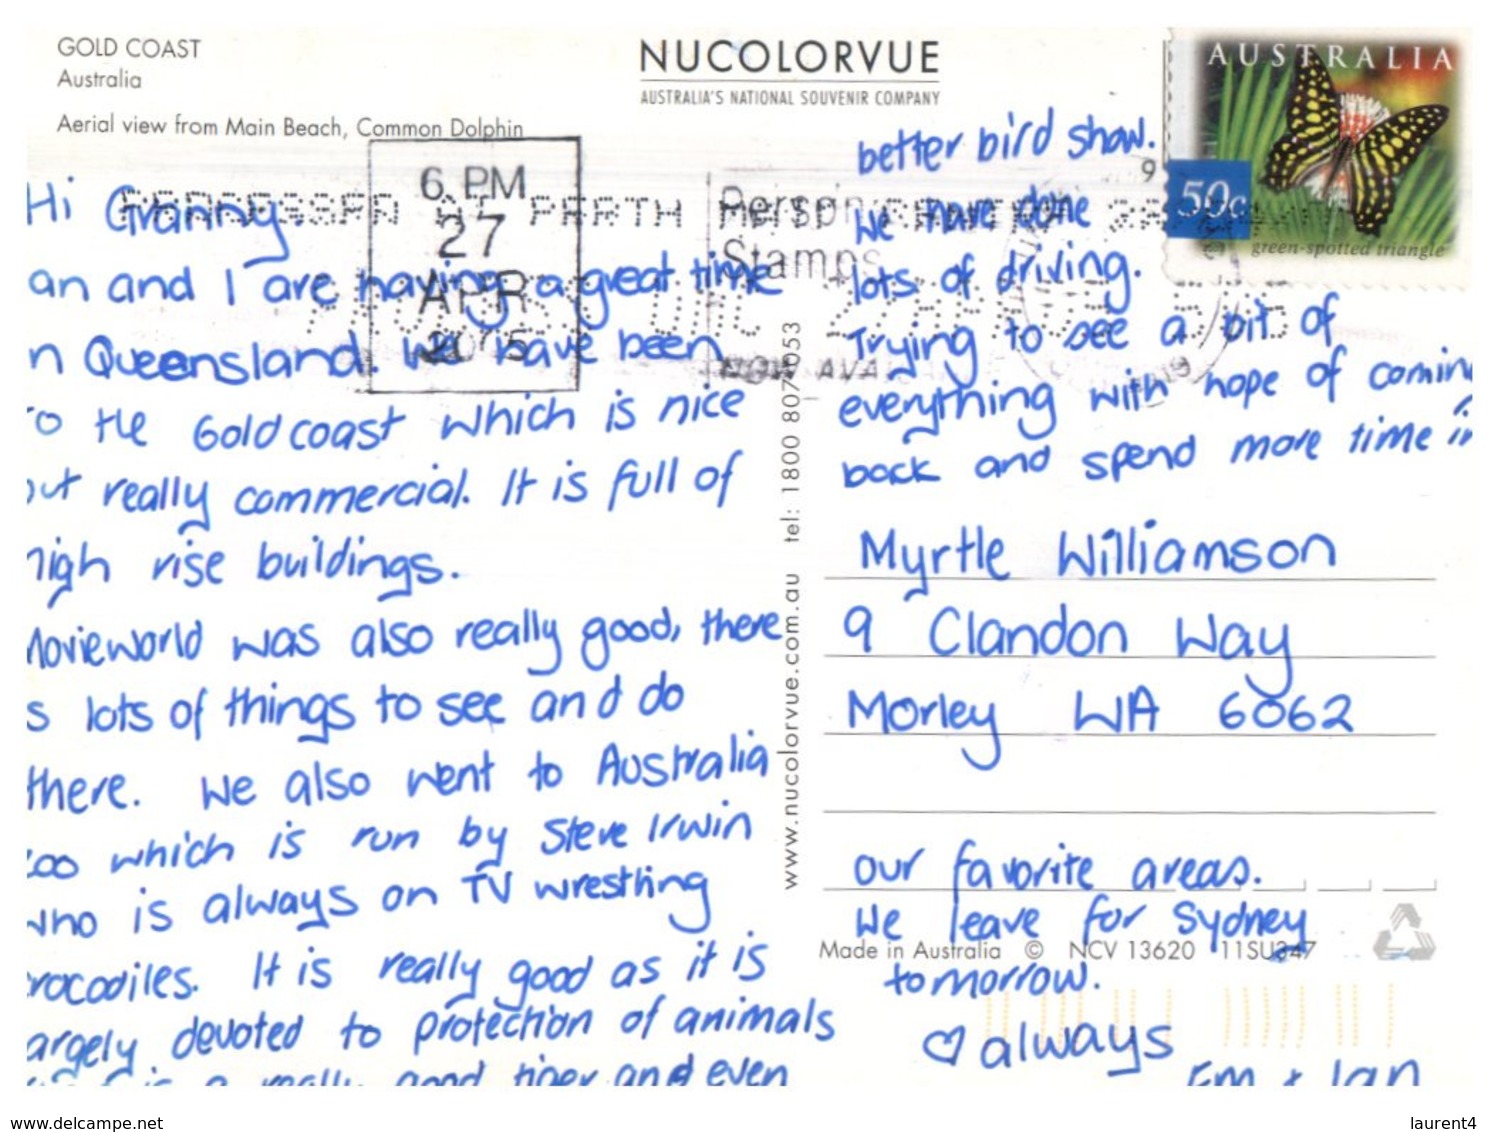 GOLD COAST
Australia
Aerial view from Main Beach, Common Dolphin
NUCOLORVUE
AUSTRALIA'S NATIONAL SOUVENIR COMPANY
AUSTRALIA
50c
green-spotted triangle
6 PM
27
APR
PERTH
Stamps
Hi Granny.
an and I are having a great time
n Queensland. We have been
o the Gold coast which is nice
ut really commercial. It is full of
high rise buildings.
Movieworld was also really good, there
s lots of things to see and do
there. We also went to Australia
zoo which is run by Steve Irwin
who is always on TV wrestling
crocodiles. It is really good as it is
largely devoted to protection of animals
is a really good tiger and even
better bird show.
We have done
lots of driving.
Trying to see a bit of
everything with hope of coming
back and spend more time in
Myrtle Williamson
9 Clandon Way
Morley WA 6062
our favorite areas.
We leave for Sydney
tomorrow.
♡ always
Em + Ian
www.nucolorvue.com.au tel: 1800 807 053
Made in Australia © NCV 13620 11SU347
www.delcampe.net
laurent4